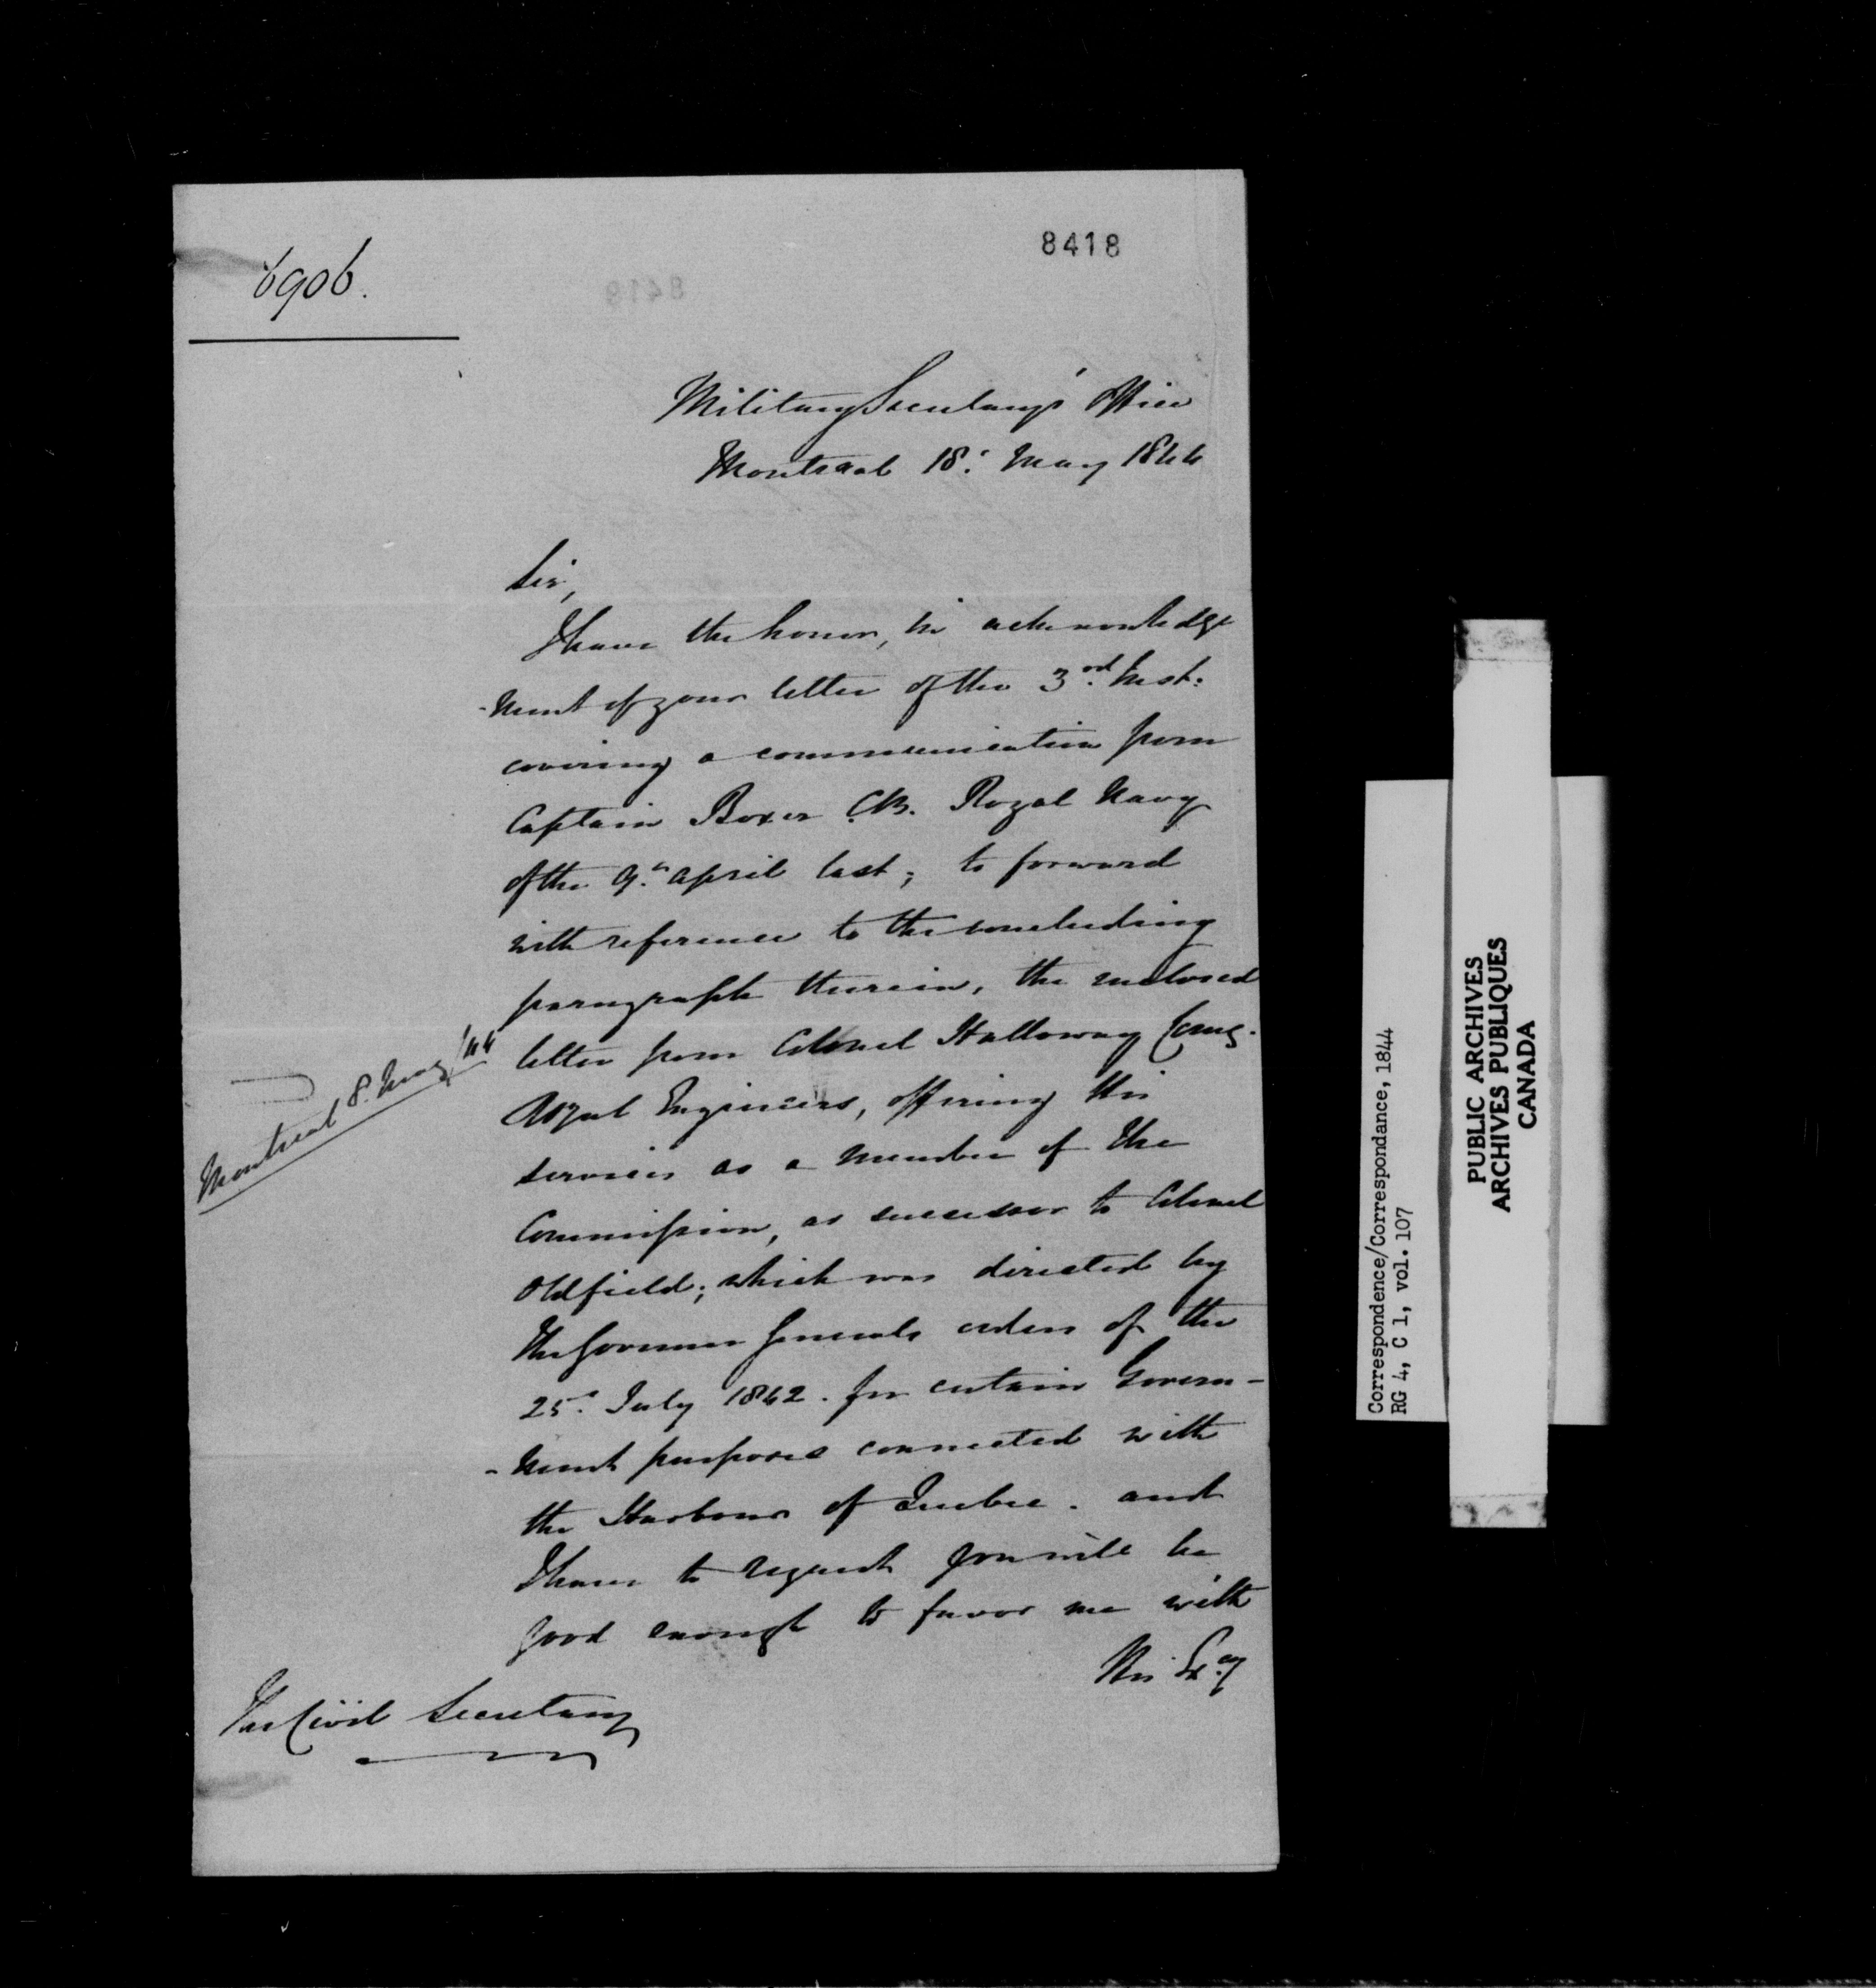 8418
6906.
Military Secretary's Office
Montreal 18: May 1844
Sir,
I have the honor, in acknowledge
-ment of your letter of the 3rd Inst:
covering a communication from
Captain Boxer C.B. Royal Navy
of the 9th April last; to forward
with reference to the concluding
paragraph therein, the enclosed
letter from Colonel Holloway Comg.
Royal Engineers, offering his
services as a member of the
Commission, as successor to Colonel
Oldfield; which was directed by
the Governor Generals orders of the
25th July 1842. for certain Govern-
-ment purposes connected with
the Harbour of Quebec. and
I have to request you will be
good enough to favor me with
His Excy
Montreal 8. May /44
The Civil Secretary
Correspondence/Correspondance, 1844
RG 4, C 1, vol. 107
PUBLIC ARCHIVES
ARCHIVES PUBLIQUES
CANADA